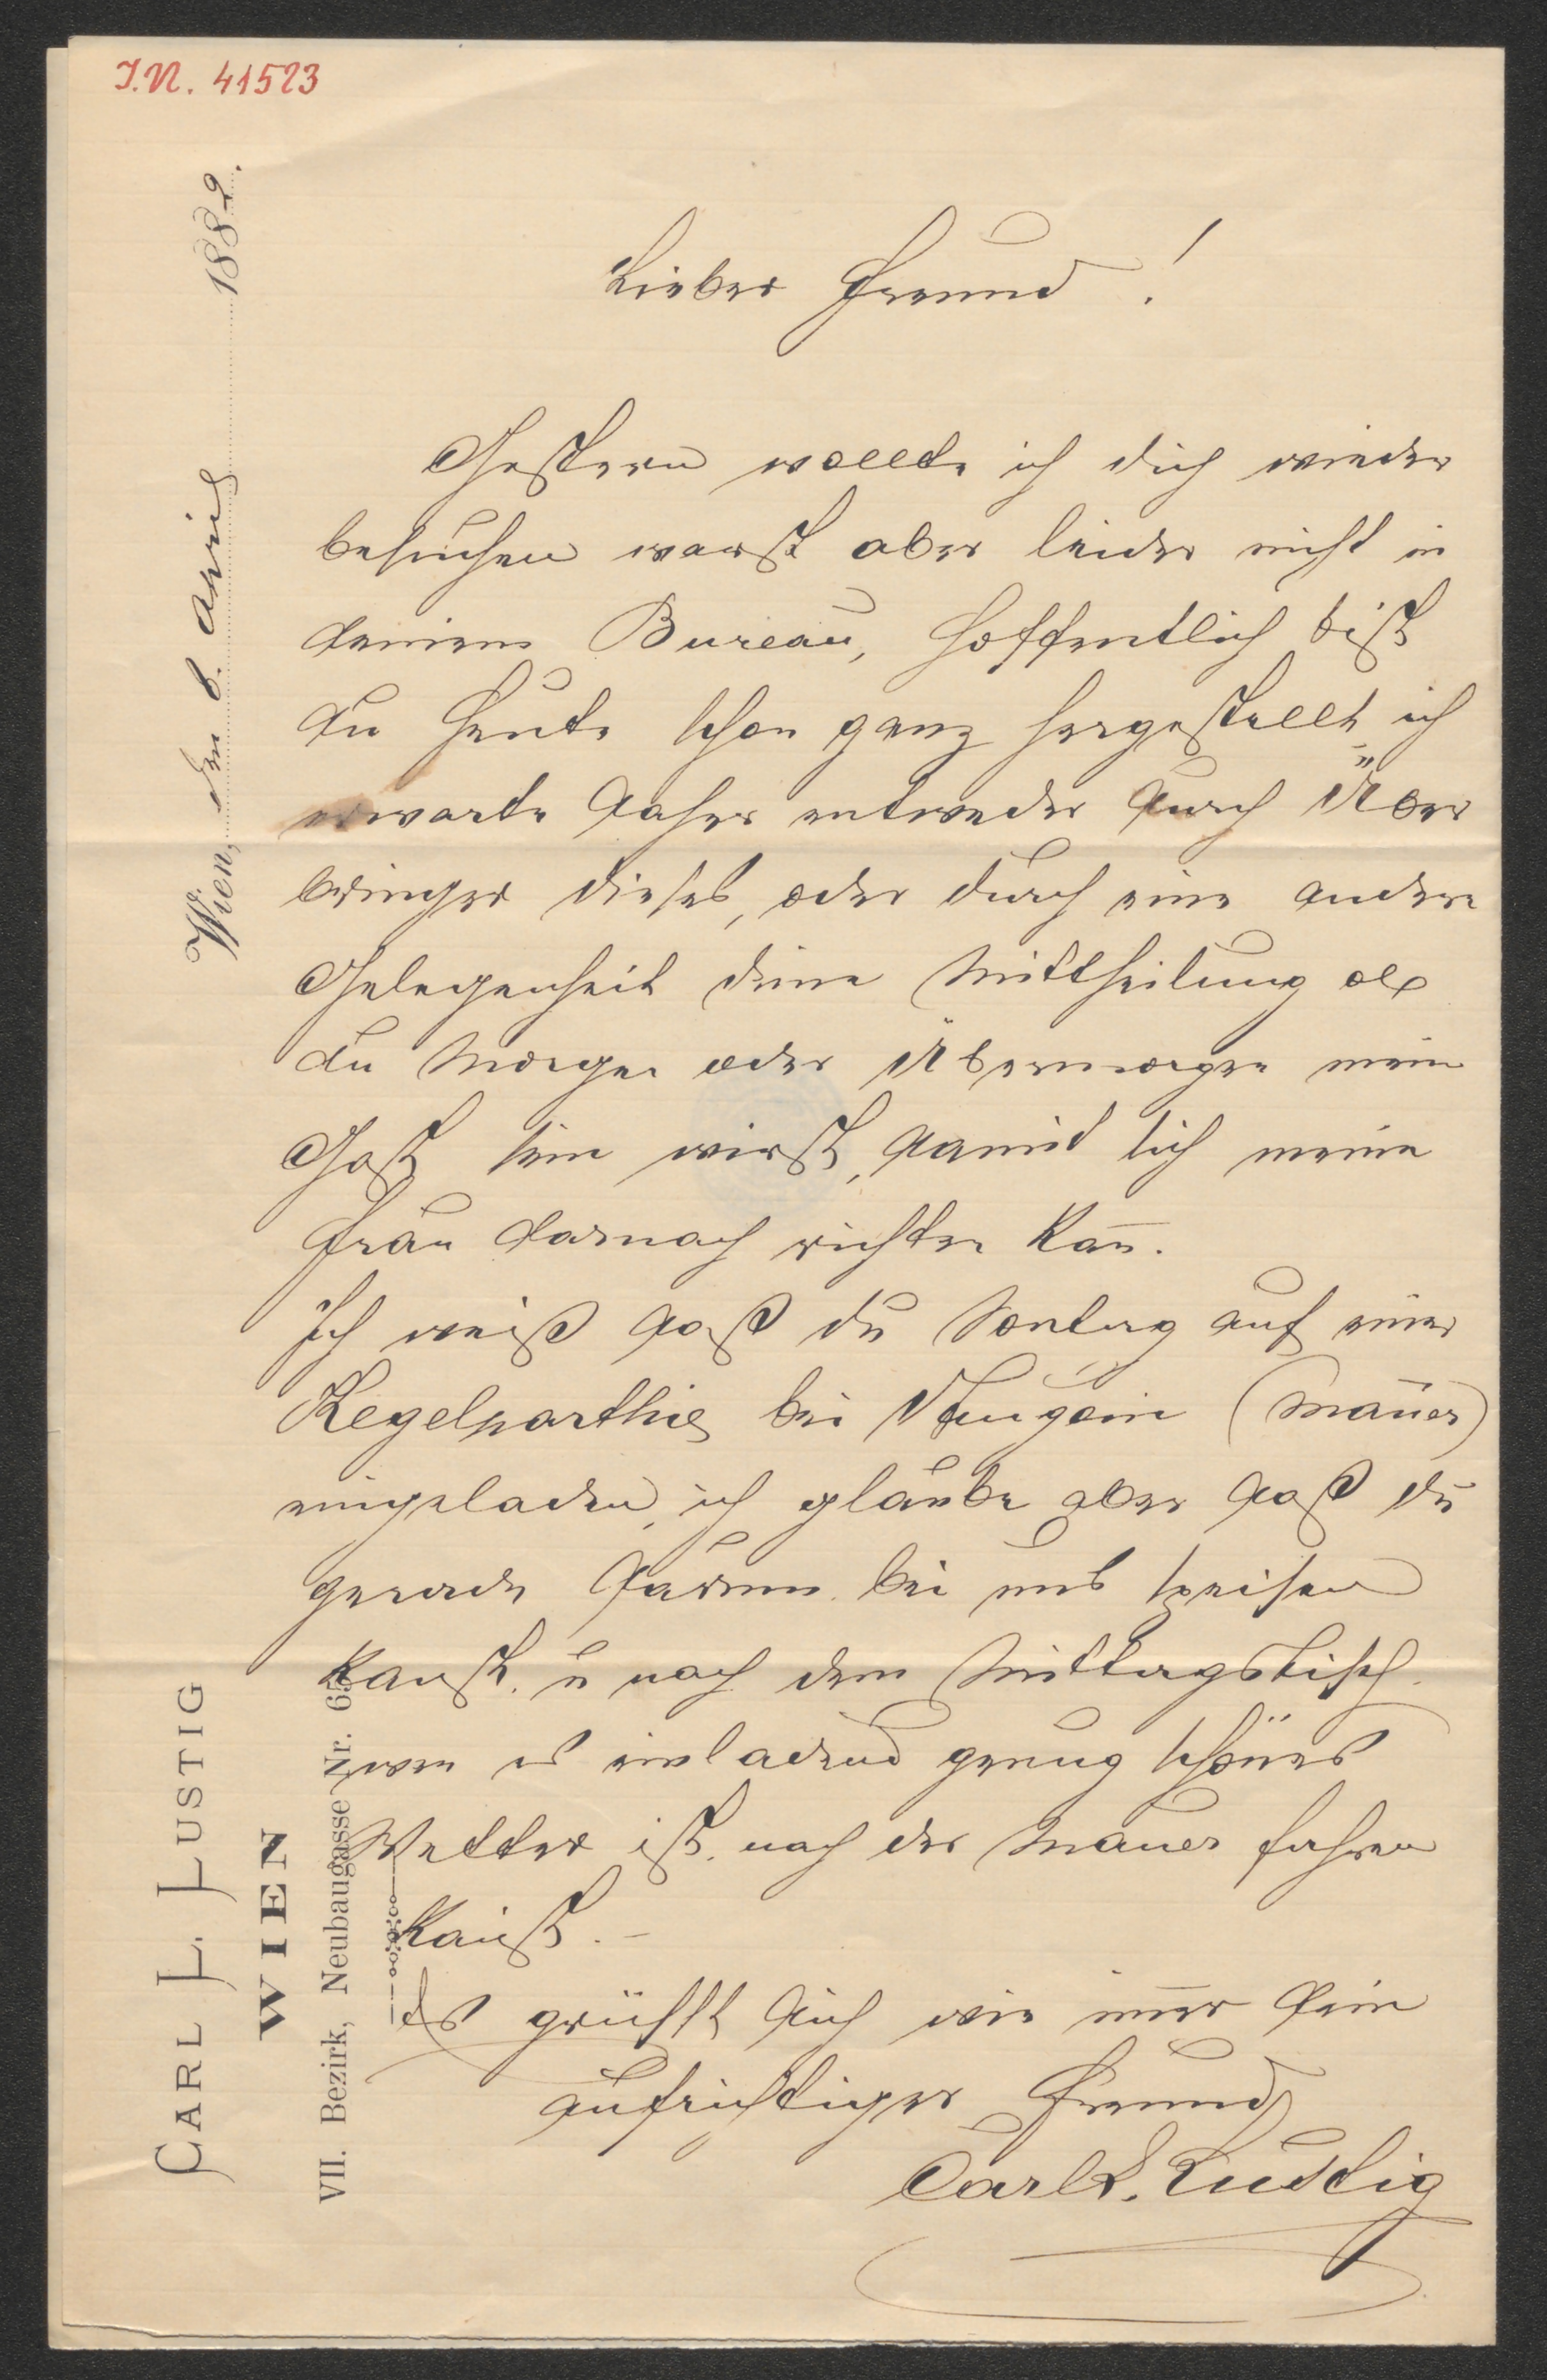 I.N. 41523
CARL L. LUSTIG
WIEN
VII. Bezirk, Neubaugasse Nr. 65
Wien, den 6. April 1882.
Lieber Freund!
Gestern wollte ich dich wieder
besuchen warst aber leider nicht in
deinem Bureau, hoffentlich bist
du heute schon ganz hergestellt, ich
erwarte daher entweder durch Über
bringer dieses, oder durch eine andere
Gelegenheit deine Mittheilung ob
du Morgen oder Übermorgen mein
Gast sein wirst, damit sich meine
Frau darnach richten kan̄.
Ich weiß daß du Sontag auf einer
Kegelparthie bei (Mauer)
eingeladen, ich glaube aber daß du
gerade darum bei uns speisen
kanst, u nach dem Mittagstisch
wen es einladend genug schönes
Wetter ist, nach der Mauer fahren
kanst. –
Es grüßt dich wie im̄er dein
aufrichtiger Freund
Carl L. Lustig